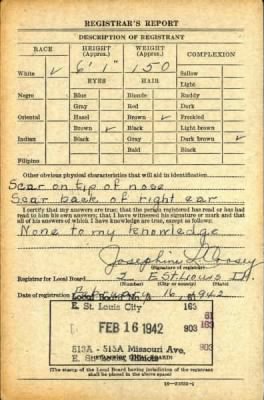 REGISTRAR'S REPORT
DESCRIPTION OF REGISTRANT
RACE HEIGHT (Approx.) WEIGHT (Approx.) COMPLEXION
White ✓ 6' 1" 150 Sallow
EYES HAIR Light
Negro Blue Blonde Ruddy
Gray Red Dark
Oriental Hazel Brown ✓ Freckled
Brown ✓ Black Light brown
Indian Black Gray Dark brown ✓
Bald Black
Filipino
Other obvious physical characteristics that will aid in identification
Scar on tip of nose
Scar back of right ear
I certify that my answers are true; that the person registered has read or has had
read to him his own answers; that I have witnessed his signature or mark and that
all of his answers of which I have knowledge are true, except as follows:
None to my knowledge
Josephine
(Signature of registrar)
Registrar for Local Board 2 E. St. Louis Ill.
(City or county)
Date of registration Feb 16 1942
Local Board No. 61
E. St. Louis City 163
163
FEB 16 1942 903
513A - 515A Missouri Ave,
E. St. Louis, Illinois
(The stamp of the Local Board having jurisdiction of the registrant
shall be placed in the above space)